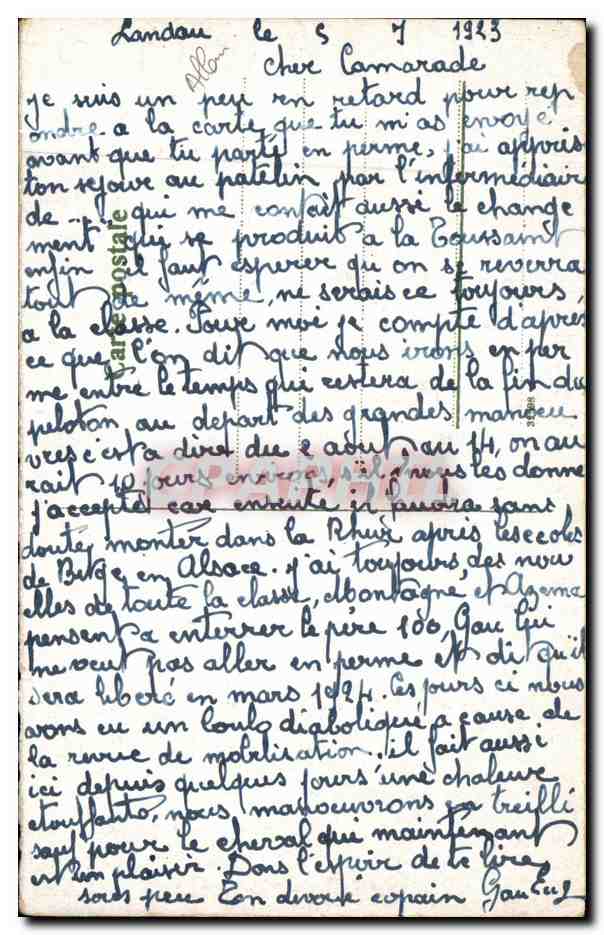 Landau le 5 7 1923
Allem
cher Camarade
je suis un peu en retard pour rep
ondre a la carte que tu m'as envoyé
avant que tu parte en perme, j'ai appris
ton sejour au patelin par l'intermédiair
de ... qui me contait aussi le change
ment qui se produit a la Toussaint
enfin il faut esperer qu on se reverra
tout de même, ne serais ce toujours,
a la classe. Pour moi je compte d'après
ce que l'on dit que nous irons en per
me entre le temps qui restera de la fin du
peloton au depart des grandes manoeu
vres c'est a dire du 2 aout au 14, on au
rait 10 jours environs, s'il nous les donne
j'accepte car ensuite il faudra sans
doute monter dans la Rhur après les ecoles
de Bitge en Alsace. j'ai toujours des nou
elles de toute la classe, Montagne et Azema
pensent a enterrer le père 100, Gau lui
ne veut pas aller en perme et dit qu'il
sera liberé en mars 1924. Ces jours ci nous
avons eu un boulo diabolique a cause de
la revue de mobilisation. il fait aussi
ici depuis quelques jours une chaleure
etouffante, nous manoeuvrons en treilli
sauf pour le cheval qui maintenant
est un plaisir. Dans l'espoir de te lire
sous peu Ton devoué copain
Carte postale